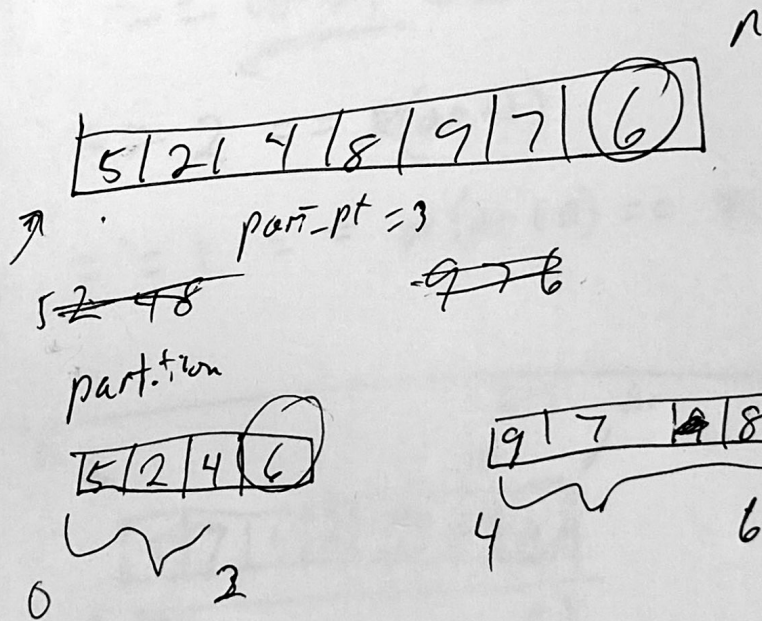 n
5 | 2 | 4 | 8 | 9 | 7 | 6
part_pt = 3
5 2 4 8 9 7 6
partition
5 | 2 | 4 | 6 9 | 7 | 8
0 2 4 6